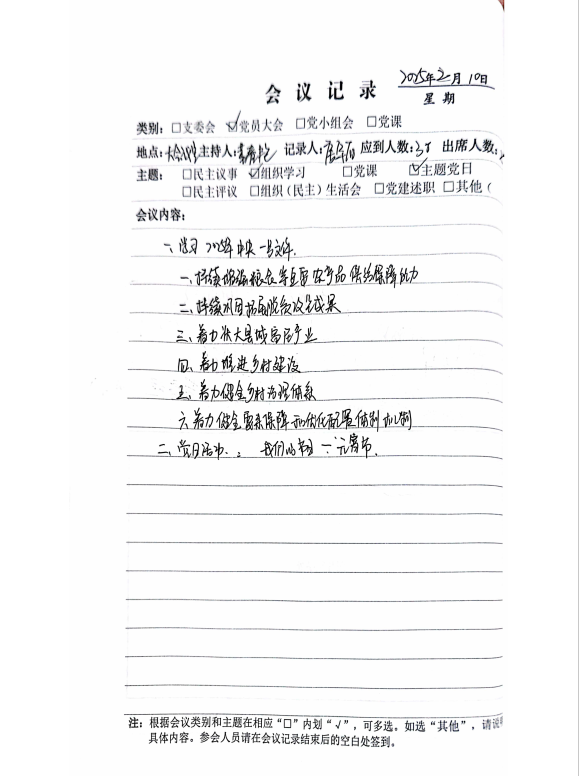 2025年2月10日
会议记录
星期
类别：□支委会 ☑党员大会 □党小组会 □党课
地点： 主持人： 记录人： 应到人数： 出席人数：
主题：□民主议事 ☑组织学习 □党课 ☑主题党日
□民主评议 □组织（民主）生活会 □党建述职 □其他（
会议内容：
一、学习2025年中央一号文件.
一、持续增强粮食等重要农产品供给保障能力
二、持续巩固拓展脱贫攻坚成果
三、着力壮大县域富民产业
四、着力推进乡村建设
五、着力健全乡村治理体系
六、着力健全要素保障和优化配置体制机制
二、党日活动： 我们的节日一元宵节.
注：根据会议类别和主题在相应“□”内划“√”，可多选。如选“其他”，请说明
具体内容。参会人员请在会议记录结束后的空白处签到。